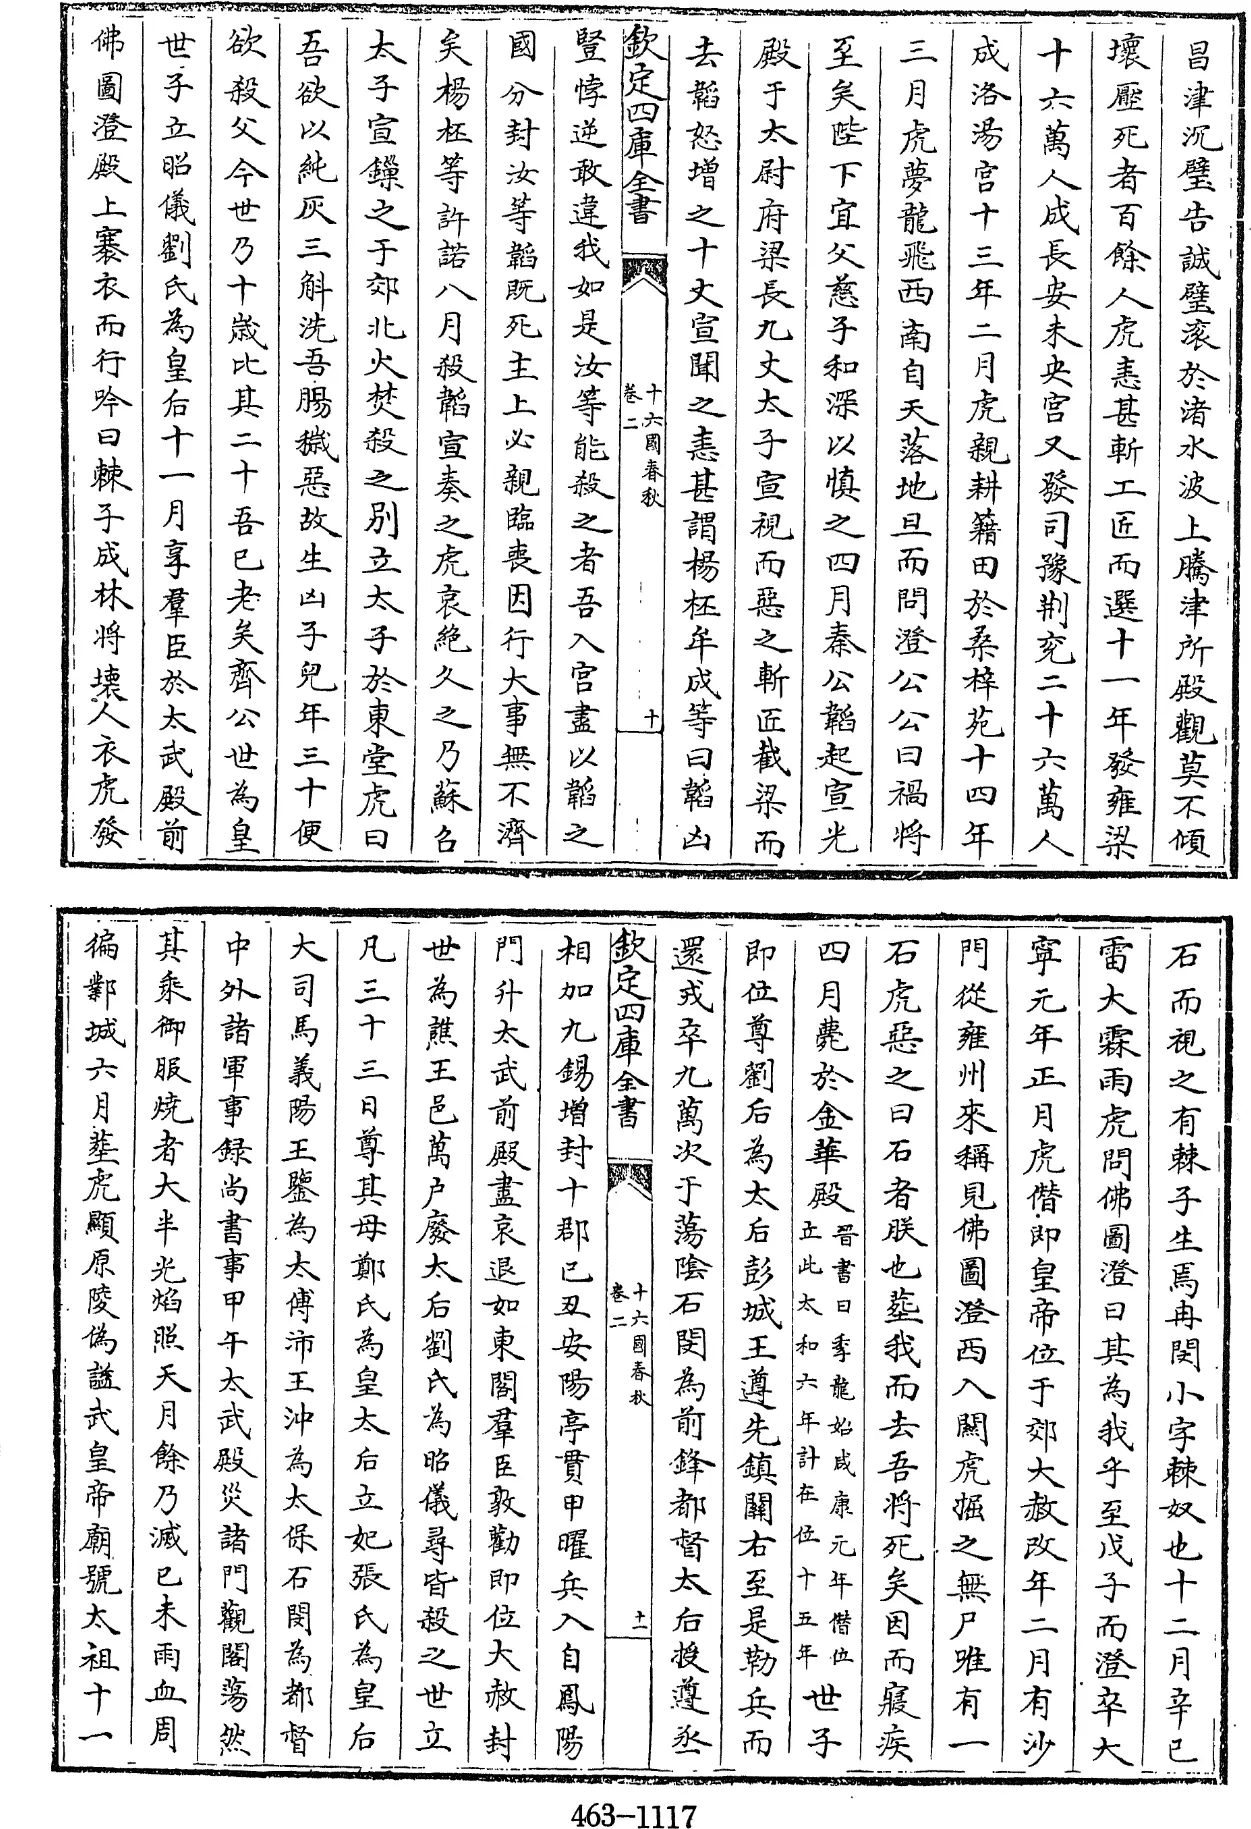 昌津沉璧告誠璧滚於渚水波上騰津所殿觀莫不傾
壞壓死者百餘人虎恚甚斬工匠而選十一年發雍梁
十六萬人成長安未央宫又發司豫荆兖二十六萬人
成洛湯宫十三年二月虎親耕籍田於桑梓苑十四年
三月虎夢龍飛西南自天落地旦而問澄公公曰禍將
至矣陛下宜父慈子和深以慎之四月秦公韜起宣光
殿于太尉府梁長九丈太子宣視而惡之斬匠截梁而
去韜怒增之十丈宣聞之恚甚謂楊柸牟成等曰韜凶
欽定四庫全書
十六國春秋
卷二
十
豎悖逆敢違我如是汝等能殺之者吾入宫盡以韜之
國分封汝等韜既死主上必親臨喪因行大事無不濟
矣楊柸等許諾八月殺韜宣奏之虎哀絶久之乃蘇白
太子宣鏁之于郊北火焚殺之别立太子於東堂虎曰
吾欲以純灰三斛洗吾腸穢惡故生凶子兒年三十便
欲殺父今世乃十嵗比其二十吾已老矣齊公世為皇
世子立昭儀劉氏為皇后十一月享羣臣於太武殿前
佛圖澄殿上褰衣而行吟曰棘子成林將壊人衣虎發
石而視之有棘子生焉冉閔小字棘奴也十二月辛巳
雷大霖雨虎問佛圖澄曰其為我乎至戊子而澄卒大
寜元年正月虎僣即皇帝位于郊大赦改年二月有沙
門從雍州來稱見佛圖澄西入闗虎掘之無尸唯有一
石虎惡之曰石者朕也塟我而去吾將死矣因而寢疾
四月薨於金華殿晉書曰季龍始咸康元年僣位立此太和六年計在位十五年世子
即位尊劉后為太后彭城王遵先鎮闗右至是勒兵而
還戎卒九萬次于蕩陰石閔為前鋒都督太后授遵丞
欽定四庫全書
十六國春秋
卷二
十一
相加九錫增封十郡己丑安陽亭貫甲曜兵入自鳳陽
門升太武前殿盡哀退如東閣羣臣敦勸即位大赦封
世為譙王邑萬户廢太后劉氏為昭儀尋皆殺之世立
凡三十三日尊其母鄭氏為皇太后立妃張氏為皇后
大司馬義陽王鑒為太傅沛王沖為太保石閔為都督
中外諸軍事録尚書事甲午太武殿災諸門觀閣蕩然
其乗御服燒者大半光焰照天月餘乃滅已未雨血周
徧鄴城六月塟虎顯原陵偽諡武皇帝廟號太祖十一
463-1117